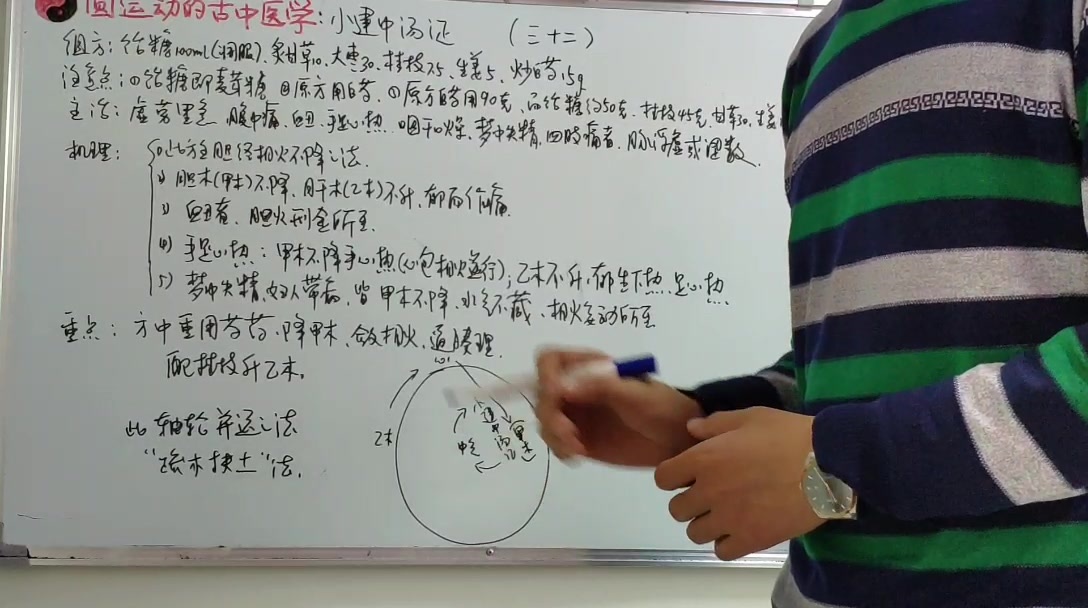 圆运动的古中医学：小建中汤证 （三十二）
组方：饴糖100ml(烊服)、炙甘草10、大枣30、桂枝7.5、生姜5、炒白芍15g
注意点：①饴糖即麦芽糖 ②原方用白芍、③原方白芍用90克、而饴糖约50克、桂枝45克、甘草30、生姜
主治：虚劳里急 腹中痛、衄、手足心热、咽干口燥、梦中失精、四肢痛者、脉浮虚或涩数、
机理： 1)此方呈胆经相火不降之法.
2) 胆木(甲木)不降、肝木(乙木)不升、郁而作痛.
3) 衄者、胆火刑金所至.
4) 手足心热：甲木不降手心热(心包相火逆行)；乙木不升、郁生下热、足心热
5) 梦中失精,妇人带病、皆甲木不降、水气不藏、相火妄动所至
重点：方中重用芍药、降甲木、敛相火、通腠理.
配桂枝升乙木.
此轴轮并运之法
"疏木扶土"法.
乙木
中气
小建中汤证
甲木